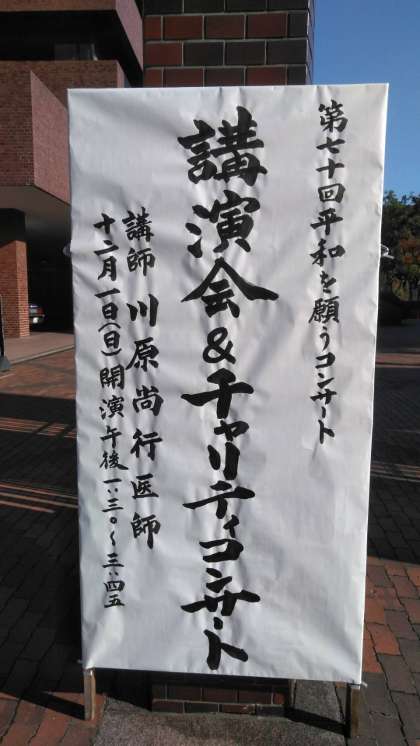 第七十回平和を願うコンサート
講演会&チャリティコンサート
講師 川原尚行医師
十二月一日(日)開演午後一:三〇〜三:四五